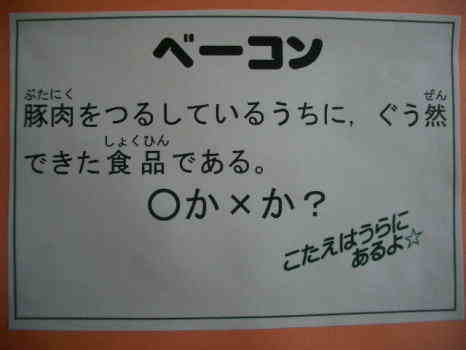 ベーコン
ぶたにく ぜん
豚肉をつるしているうちに，ぐう然
しょくひん
できた食品である。
〇か×か？
こたえはうらに
あるよ☆